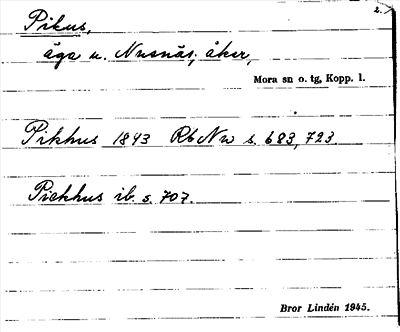 2.
Pikus,
äga u. Nusnäs, åker,
Mora sn o. tg, Kopp. l.
Pikhus 1843 Rb Nw s. 683, 723.
Pickhus ib. s. 707.
Bror Lindén 1945.